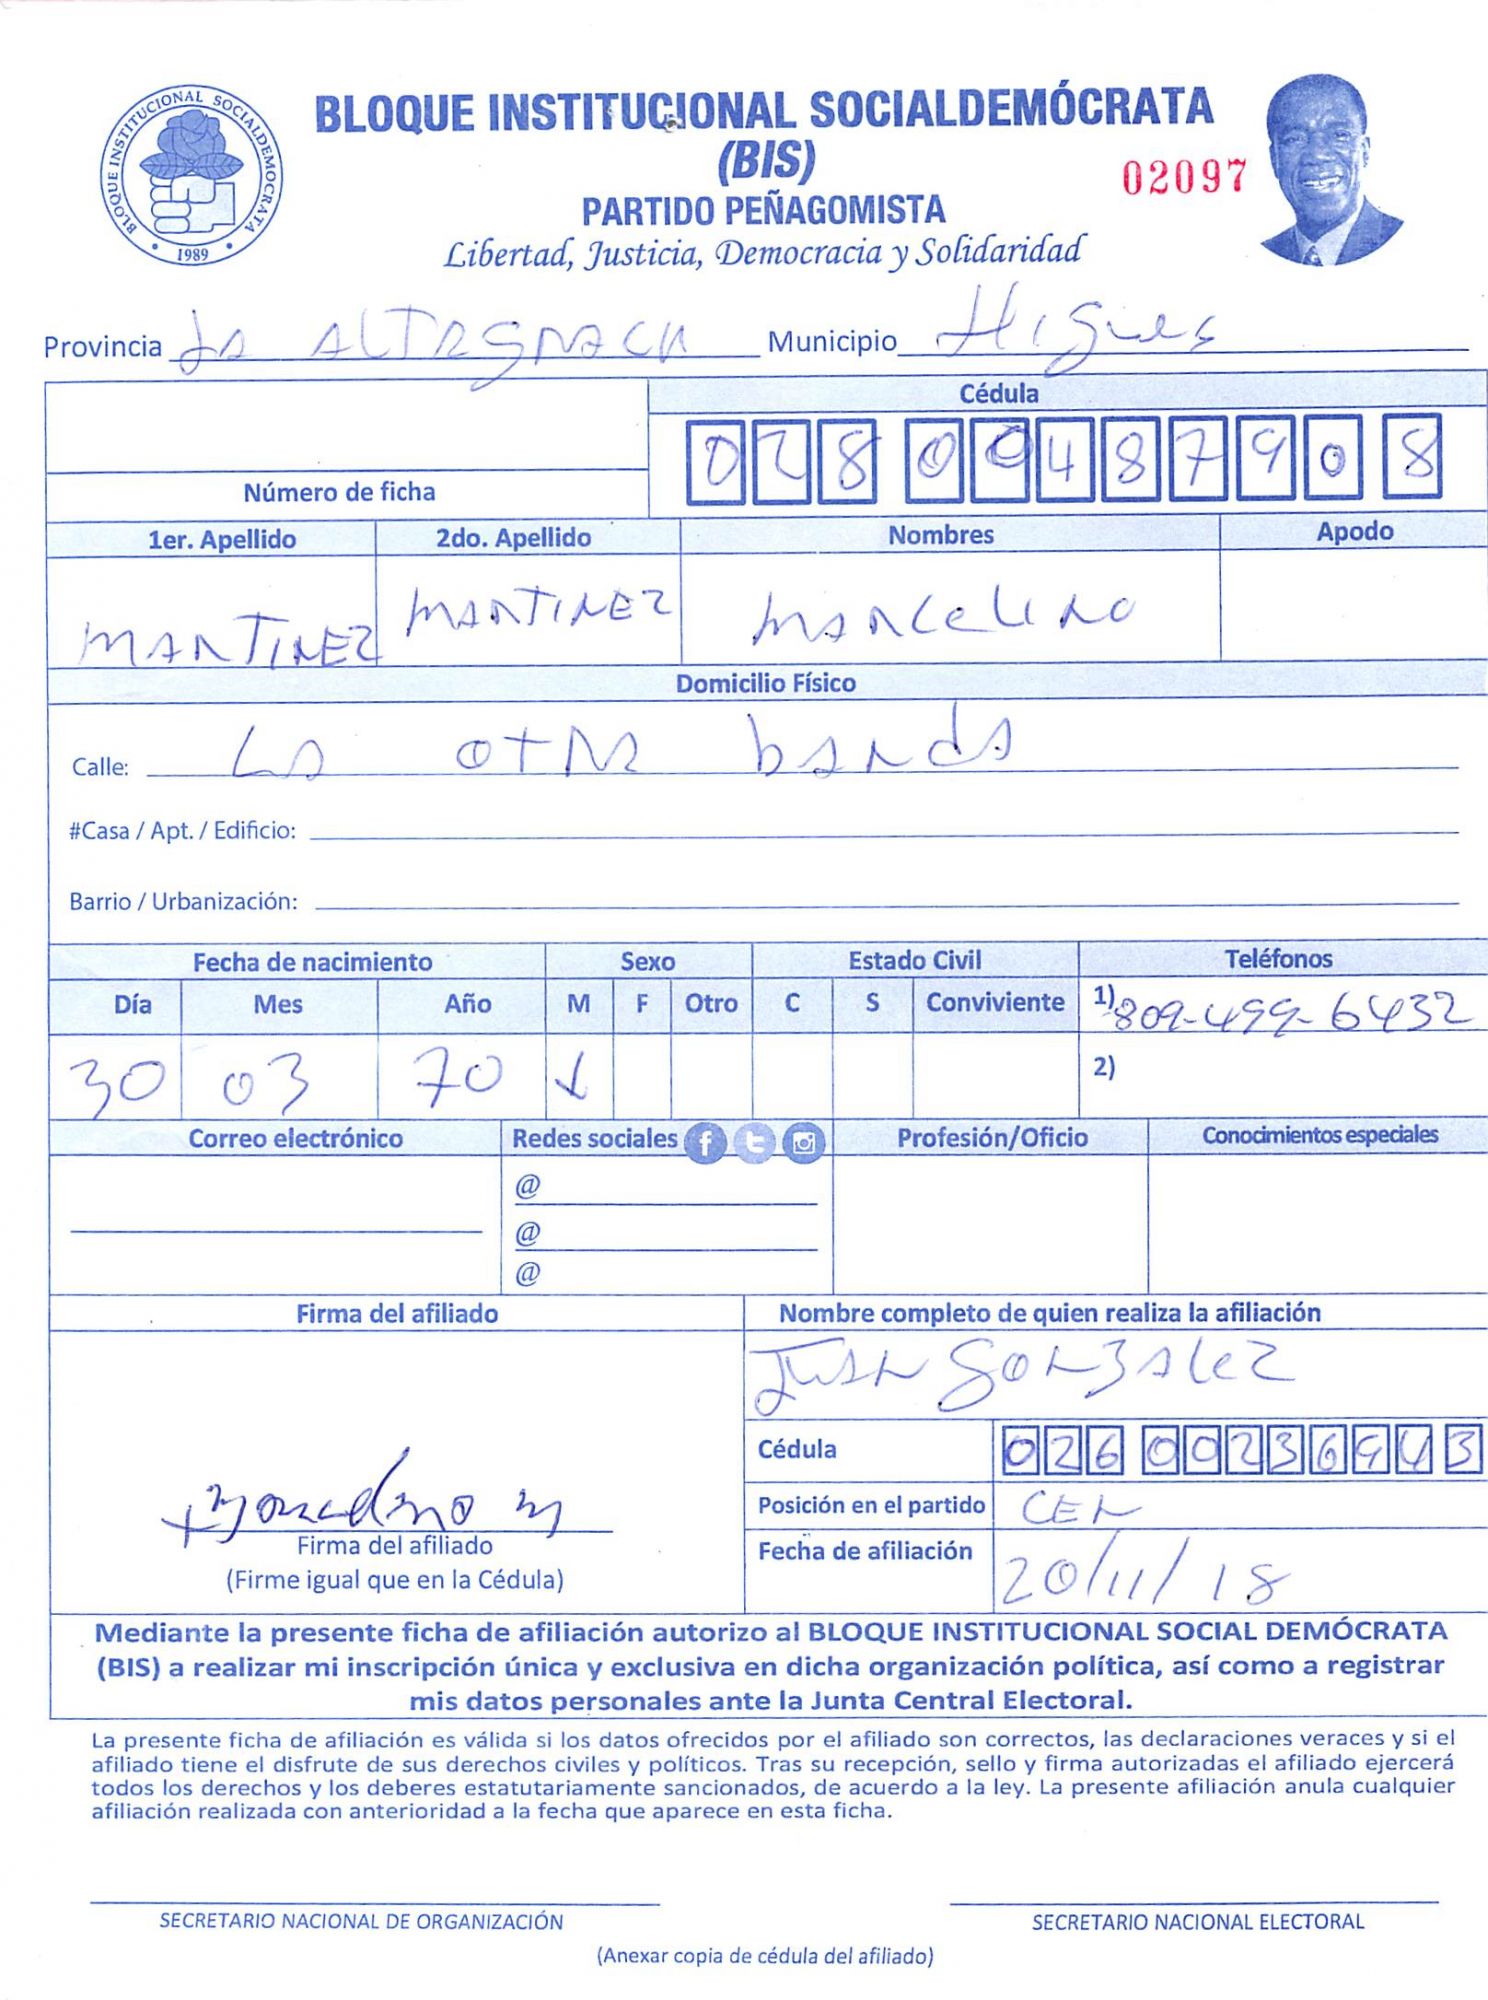 BLOQUE INSTITUCIONAL SOCIALDEMOCRATA
1989
BLOQUE INSTITUCIONAL SOCIALDEMÓCRATA
(BIS)
02097
PARTIDO PEÑAGOMISTA
Libertad, Justicia, Democracia y Solidaridad
Provincia La ALTAGRACIA Municipio Higuey
Cédula
028 0048790 8
Número de ficha
1er. Apellido 2do. Apellido Nombres Apodo
MARTINEZ MARTINEZ MARCELINO
Domicilio Físico
Calle: LA OTRA bANdA
#Casa / Apt. / Edificio:
Barrio / Urbanización:
Fecha de nacimiento Sexo Estado Civil Teléfonos
Día Mes Año M F Otro C S Conviviente 1) 809-499-6432
30 03 70 2)
Correo electrónico Redes sociales Profesión/Oficio Conocimientos especiales
@
@
@
Firma del afiliado Nombre completo de quien realiza la afiliación
JUAN GONZALEZ
Cédula 026 0023694 3
Marcelino M
Posición en el partido CEN
Firma del afiliado
Fecha de afiliación 20/11/18
(Firme igual que en la Cédula)
Mediante la presente ficha de afiliación autorizo al BLOQUE INSTITUCIONAL SOCIAL DEMÓCRATA
(BIS) a realizar mi inscripción única y exclusiva en dicha organización política, así como a registrar
mis datos personales ante la Junta Central Electoral.
La presente ficha de afiliación es válida si los datos ofrecidos por el afiliado son correctos, las declaraciones veraces y si el
afiliado tiene el disfrute de sus derechos civiles y políticos. Tras su recepción, sello y firma autorizadas el afiliado ejercerá
todos los derechos y los deberes estatutariamente sancionados, de acuerdo a la ley. La presente afiliación anula cualquier
afiliación realizada con anterioridad a la fecha que aparece en esta ficha.
SECRETARIO NACIONAL DE ORGANIZACIÓN SECRETARIO NACIONAL ELECTORAL
(Anexar copia de cédula del afiliado)